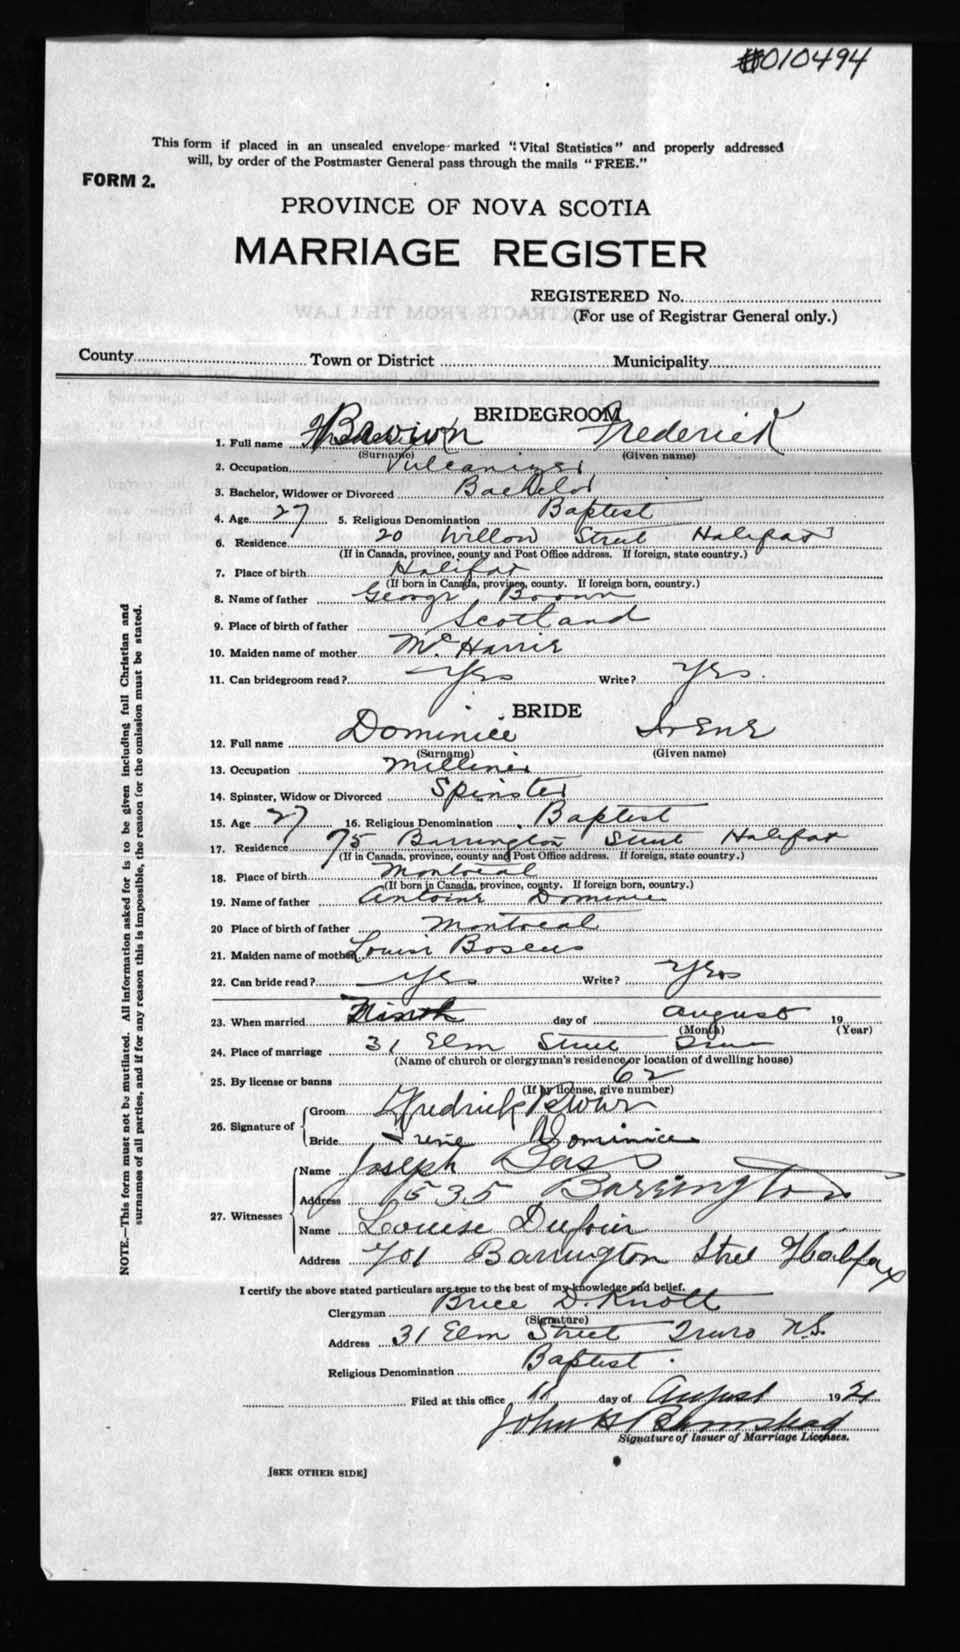 #010494
This form if placed in an unsealed envelope marked "Vital Statistics" and properly addressed
will, by order of the Postmaster General pass through the mails "FREE."
FORM 2.
PROVINCE OF NOVA SCOTIA
MARRIAGE REGISTER
REGISTERED No.
(For use of Registrar General only.)
County Town or District Municipality
BRIDEGROOM
1. Full name Brown Frederick
(Surname) (Given name)
2. Occupation Vulcanizer
3. Bachelor, Widower or Divorced Bachelor
4. Age 27 5. Religious Denomination Baptist
6. Residence 20 Willow Street Halifax
(If in Canada, province, county and Post Office address. If foreign, state country.)
7. Place of birth Halifax
(If born in Canada, province, county. If foreign born, country.)
8. Name of father George Brown
9. Place of birth of father Scotland
10. Maiden name of mother McHarrie
11. Can bridegroom read? Yes Write? Yes.
BRIDE
12. Full name Dominice Irene
(Surname) (Given name)
13. Occupation Milliner
14. Spinster, Widow or Divorced Spinster
15. Age 27 16. Religious Denomination Baptist
17. Residence 75 Barrington Street Halifax
(If in Canada, province, county and Post Office address. If foreign, state country.)
18. Place of birth Montreal
(If born in Canada, province, county. If foreign born, country.)
19. Name of father Antoine Dominice
20 Place of birth of father Montreal
21. Maiden name of mother Louise
22. Can bride read? Yes Write? Yes
23. When married Ninth day of August 19
(Month) (Year)
24. Place of marriage 31 Elm Street Truro
(Name of church or clergyman's residence or location of dwelling house)
25. By license or banns 62
(If by license, give number)
26. Signature of Groom Fredrick Brown
Bride Irene Dominice
27. Witnesses Name Joseph Bass
Address 535 Barrington
Name Louise Dufour
Address 701 Barrington Street Halifax
I certify the above stated particulars are true to the best of my knowledge and belief.
Clergyman Brice D. Knott
(Signature)
Address 31 Elm Street Truro N.S.
Religious Denomination Baptist.
Filed at this office 11 day of August 1921
John H
Signature of Issuer of Marriage Licenses.
[SEE OTHER SIDE]
NOTE.—This form must not be mutilated. All information asked for is to be given including full Christian and
surnames of all parties, and if for any reason this is impossible, the reason for the omission must be stated.